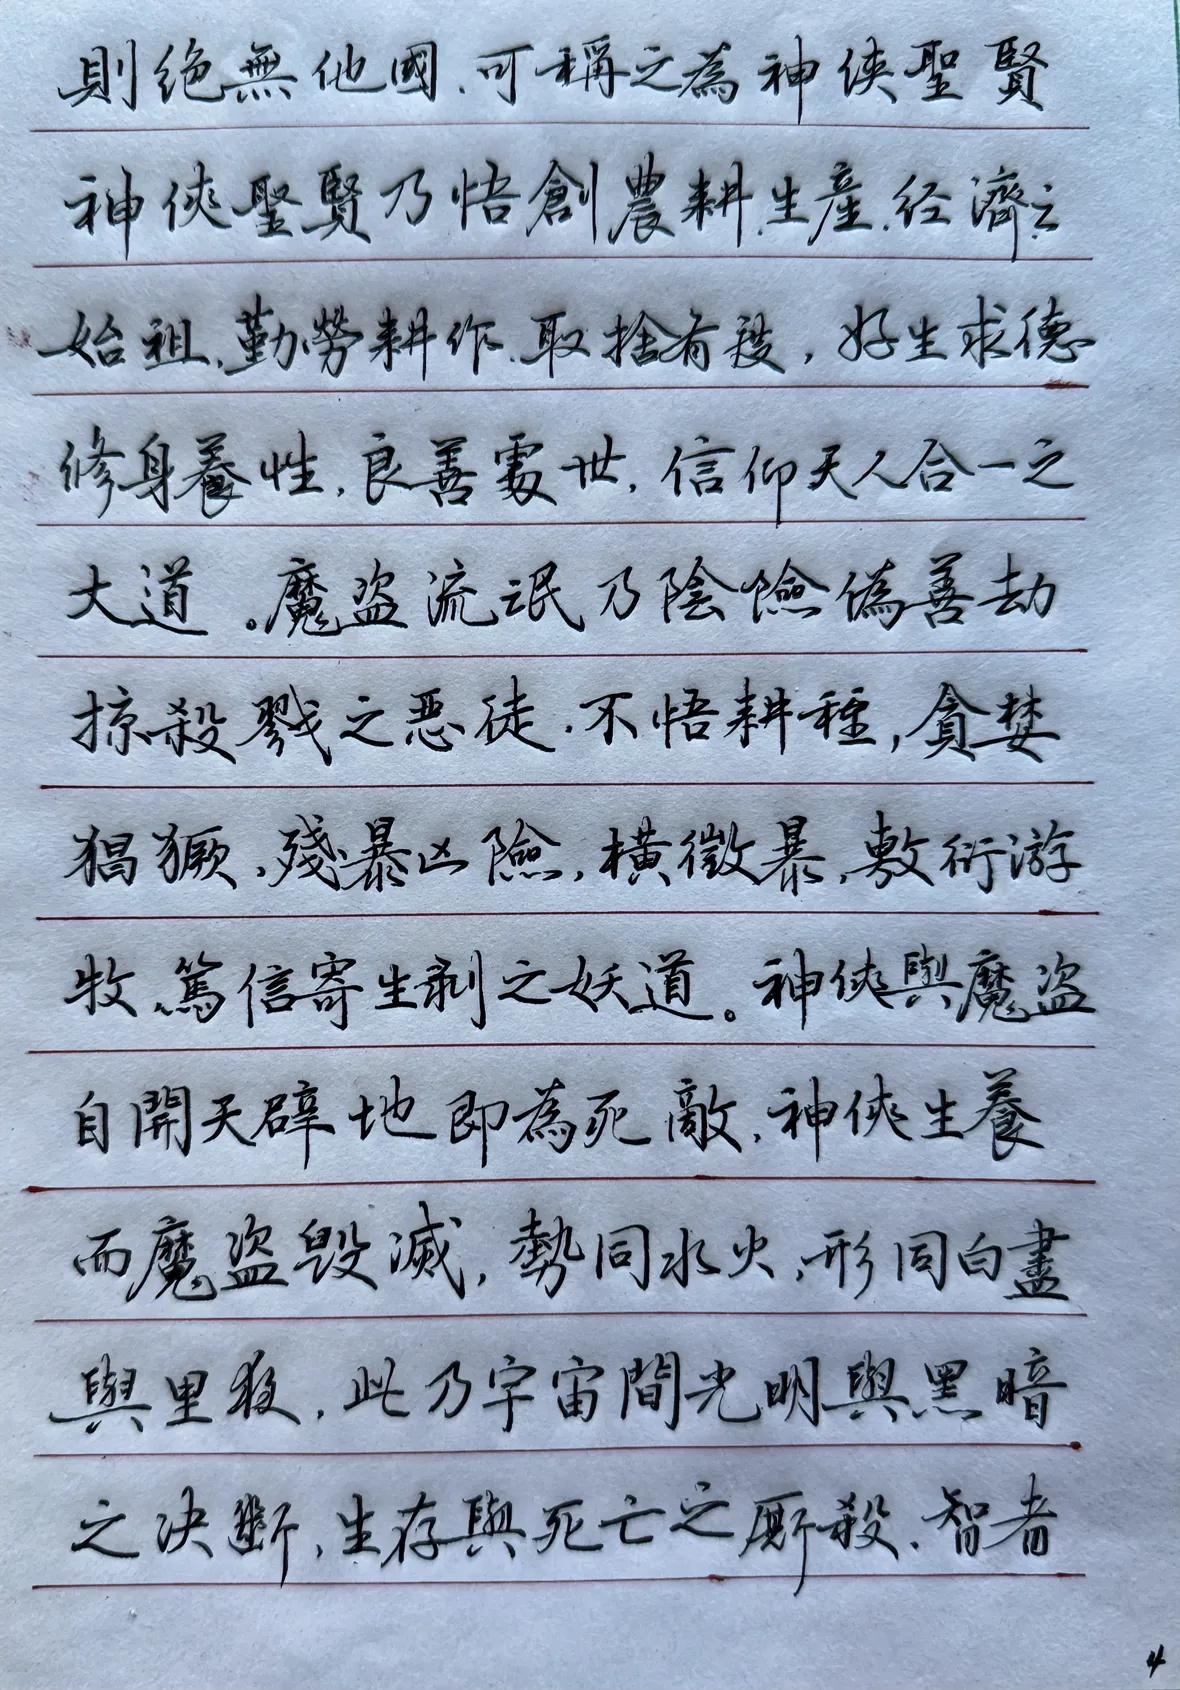 則绝無他國、可稱之為神俠聖賢
神俠聖賢乃悟創農耕、生產、经濟之
始祖、勤勞耕作、取捨有度，好生求德
修身養性，良善處世，信仰天人合一之
大道。魔盗流氓乃陰險偽善劫
掠殺戮之恶徒、不悟耕種，貪婪
猖獗，殘暴凶險，横徵暴，敷衍游
牧、篤信寄生剥之妖道。神俠與魔盗
自開天辟地即為死敵，神俠生養
而魔盗毁滅，勢同水火，形同白晝
與里夜，此乃宇宙間光明與黑暗
之决斷，生存與死亡之厮殺、智者
4